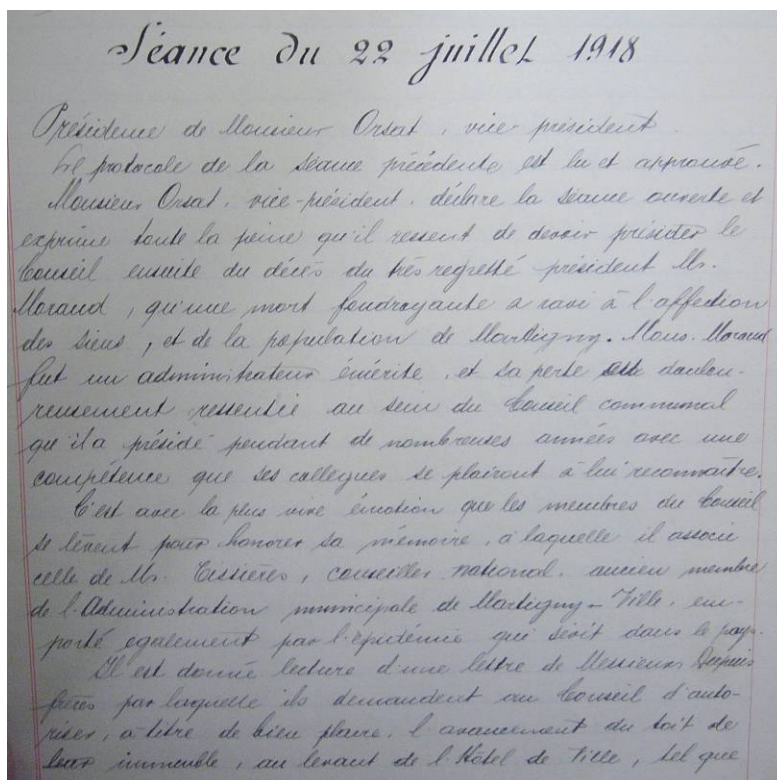 Séance du 22 juillet 1918
Présidence de Monsieur Orsat, vice-président.
Le protocole de la séance précédente est lu et approuvé.
Monsieur Orsat, vice-président, déclare la séance ouverte et
exprime toute la peine qu'il ressent de devoir présider le
Conseil ensuite du décès du très regretté président Mr.
Morand, qu'une mort foudroyante a ravi à l'affection
des siens, et de la population de Martigny. Mons. Morand
fut un administrateur émérite, et sa perte est doulou-
reusement ressentie au sein du Conseil communal
qu'il a présidé pendant de nombreuses années avec une
compétence que ses collègues se plairont à lui reconnaître.
C'est avec la plus vive émotion que les membres du Conseil
se lèvent pour honorer sa mémoire, à laquelle il associe
celle de Mr. Tissières, conseiller national, ancien membre
de l'Administration municipale de Martigny-Ville, em-
porté egalement par l'epidémie qui sévit dans le pays.
Il est donné lecture d'une lettre de Messieurs Dupuis
frères par laquelle ils demandent au Conseil d'auto-
riser, à titre de bien plaire, l'avancement du toit de
leur immeuble, au levant de l'Hôtel de Ville, tel que